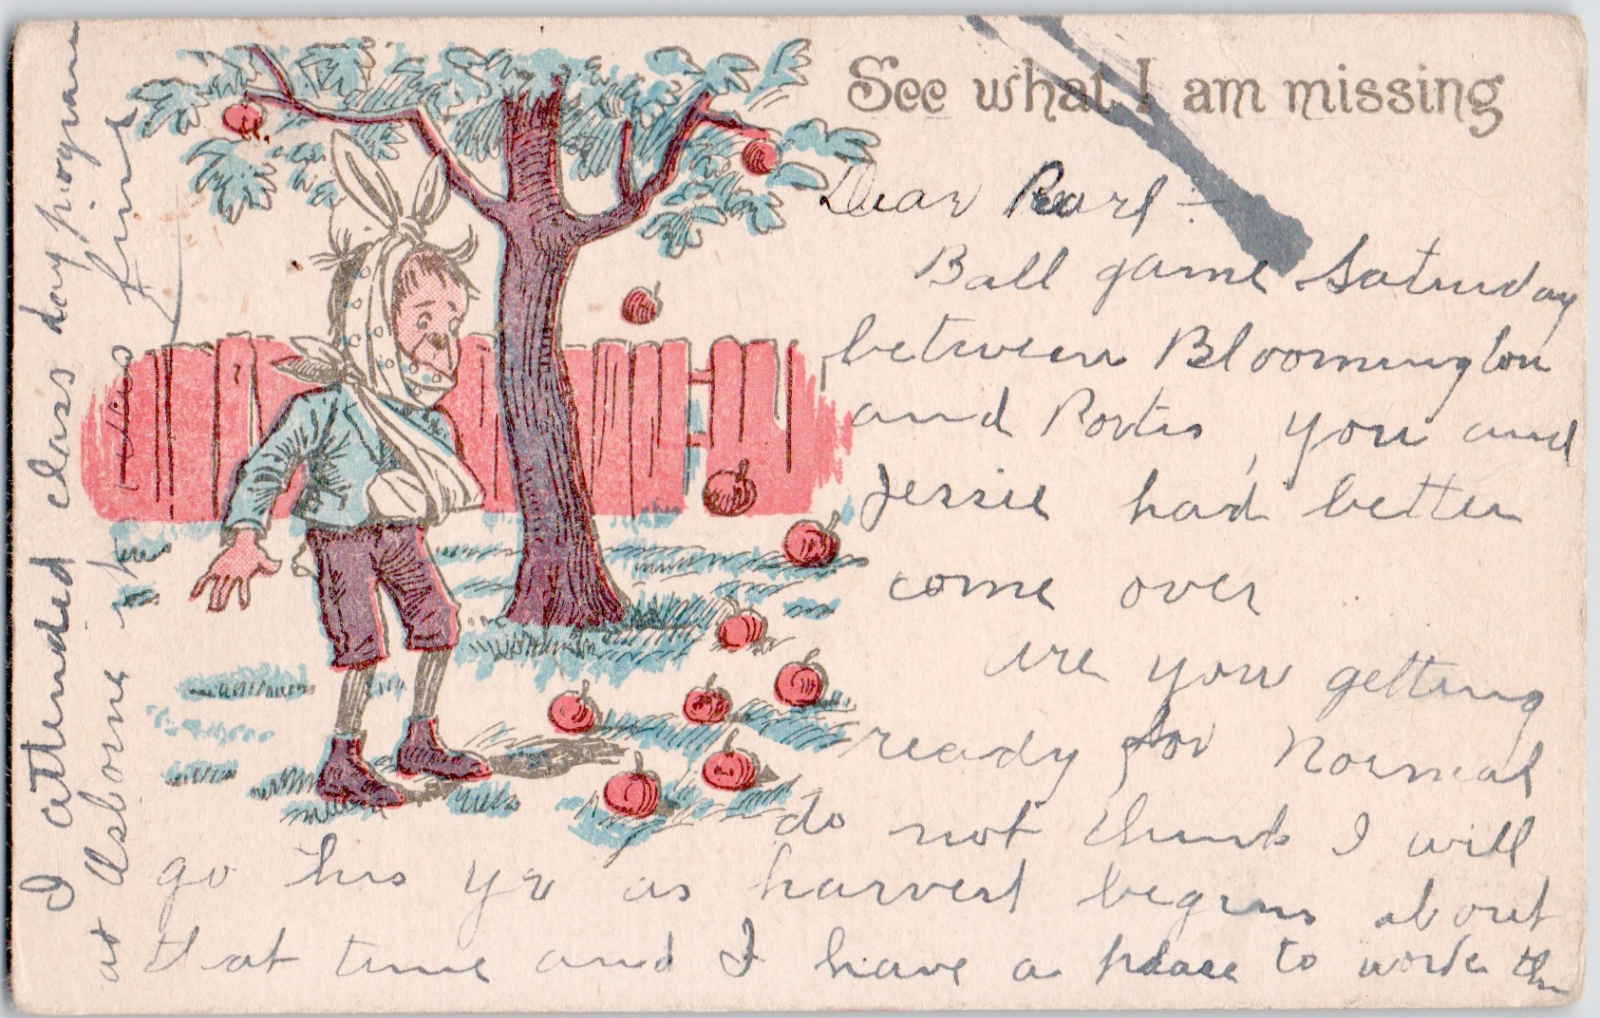 See what I am missing
Dear Pearl -
Ball game Saturday
between Bloomington
and Portis, you and
Jessie had better
come over
are you getting
ready for Normal
do not think I will
go this yr as harvest begins about
that time and I have a place to work then
I attended class day program
at Osborne it was fine